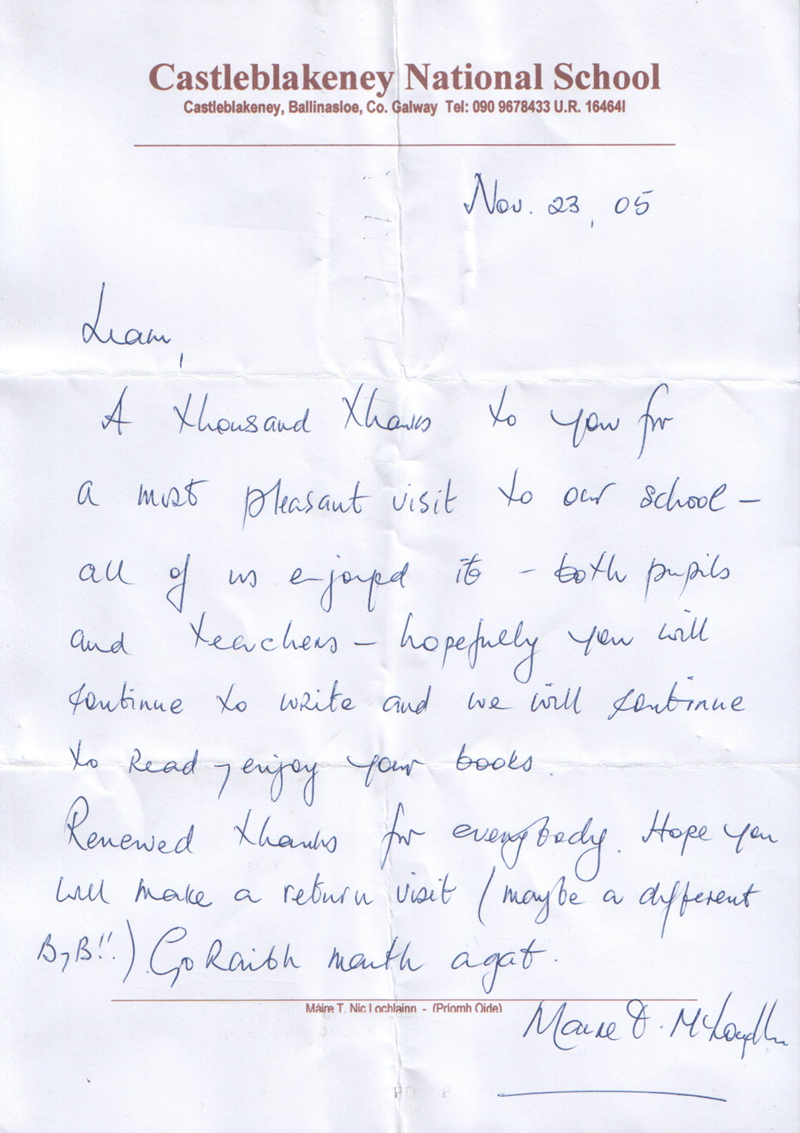 Castleblakeney National School
Castleblakeney, Ballinasloe, Co. Galway Tel: 090 9678433 U.R. 16464I
Nov. 23, 05
Liam,
A thousand thanks to you for
a most pleasant visit to our school –
all of us enjoyed it – both pupils
and teachers – hopefully you will
continue to write and we will continue
to read ⁊ enjoy your books.
Renewed thanks for everybody. Hope you
will make a return visit (maybe a different
B⁊B!!) Go Raibh maith agat.
Máire T. Nic Lochlainn - (Príomh Oide)
Maire T. McLoughlin